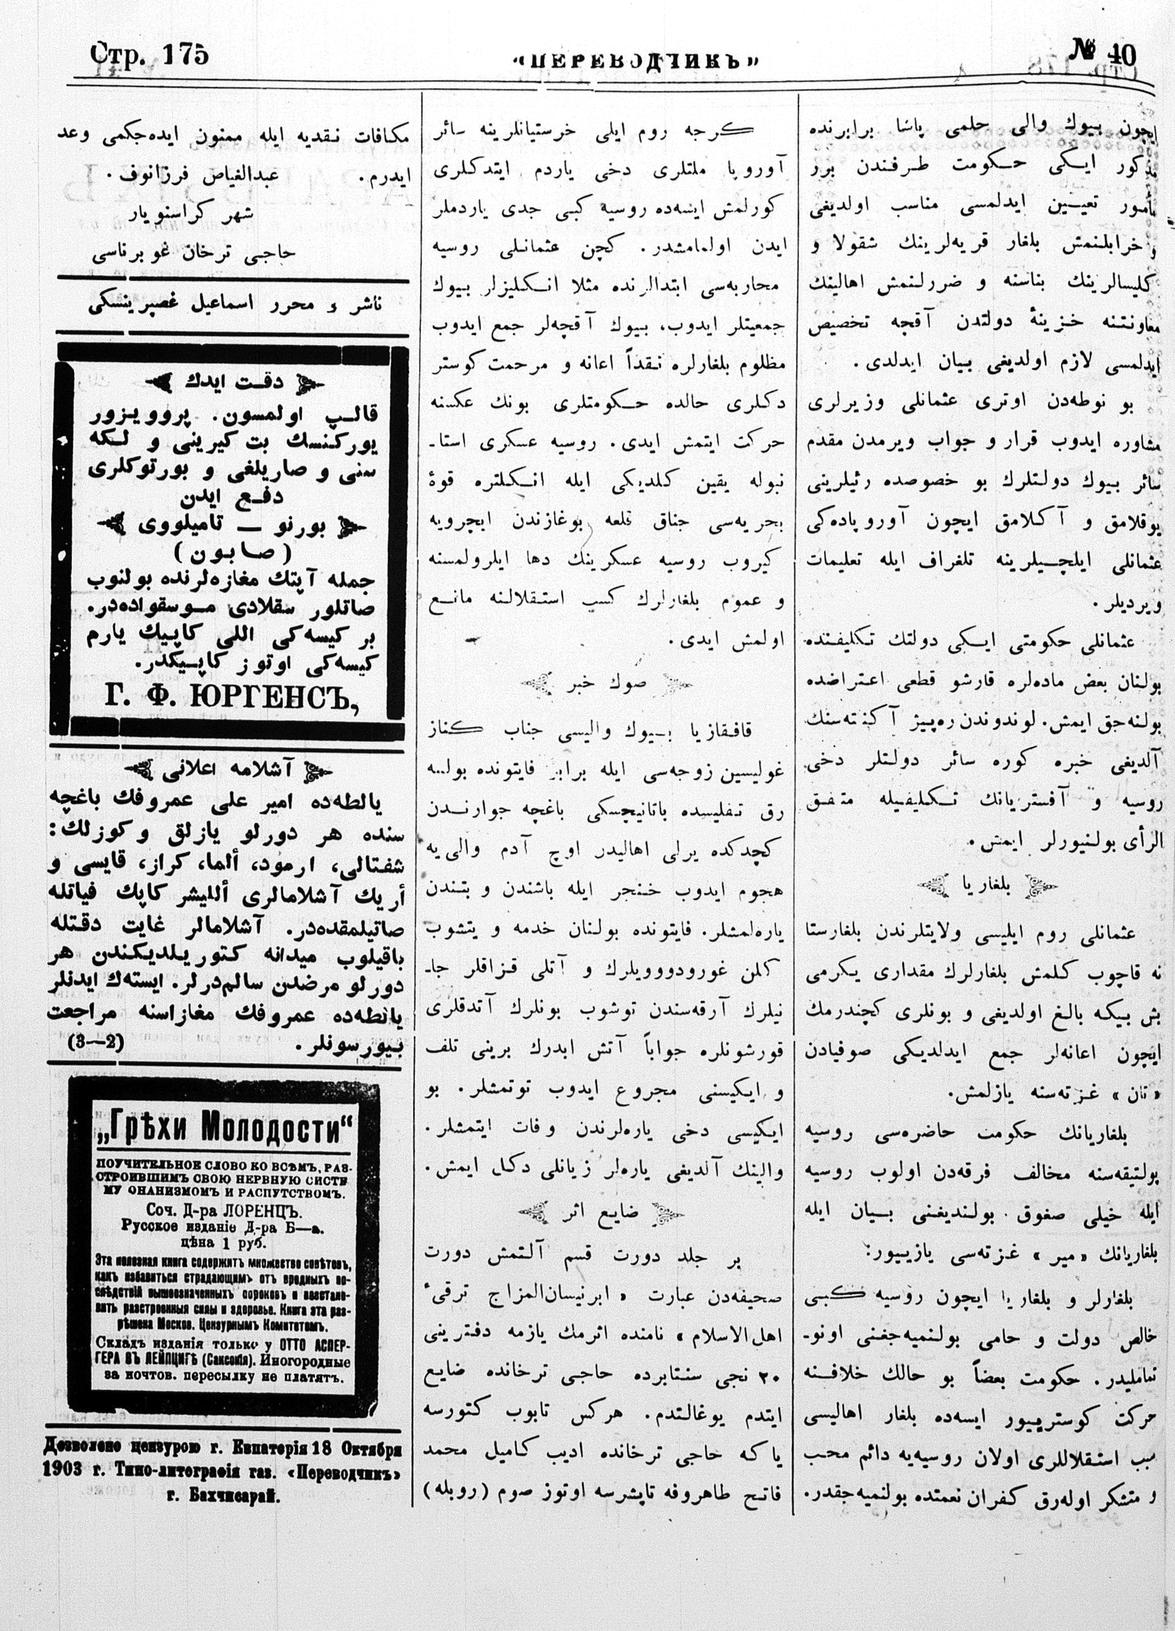 Стр. 175
«ПЕРЕВОДЧИКЪ»
№ 40
ایچون بیوك والی حلمی پاشا برابرنده
مذكور ایكی حكومت طرفندن برر
مأمور تعیین ایدلمسی مناسب اولدیغی
و خرابلنمش بلغار قریه‌لرینك شقولا و
كلیسالرینك بناسنه و ضررلنمش اهالینك
معاونتنه خزینهٔ دولتدن آقچه تخصیص
ایدلمسی لازم اولدیغی بیان ایدلدی.
بو نوطه‌دن اوتری عثمانلی وزیرلری
مشاوره ایدوب قرار و جواب ویرمدن مقدم
سائر بیوك دولتلرك بو خصوصده رئیلرینی
یوقلامق و آكلامق ایچون آوروپاده‌كی
عثمانلی ایلچیلرینه تلغراف ایله تعلیمات
ویردیلر.
عثمانلی حكومتی ایكی دولتك تكلیفنده
بولنان بعض ماده‌لره قارشو قطعی اعتراضده
بولنه‌جق ایمش. لوندوندن ره‌پیز آكنته‌سنك
آلدیغی خبره كوره سائر دولتلر دخی
روسیه و آفستریانك تكلیفیله متفق
الرأی بولنیورلر ایمش.
بلغاریا
عثمانلی روم ایلیسی ولایتلرندن بلغارستا
نه قاچوب كلمش بلغارلرك مقداری یكرمی
بش بیكه بالغ اولدیغی و بونلری كچندرمك
ایچون اعانه‌لر جمع ایدلدیكی صوفیادن
«تان» غزته‌سنه یازلمش.
بلغاریانك حكومت حاضره‌سی روسیه
پولتیقه‌سنه مخالف فرقه‌دن اولوب روسیه
ایله خیلی صغوق بولندیغنی بیان ایله
بلغاریانك «میر» غزته‌سی یازییور:
بلغارلر و بلغاریا ایچون روسیه كبی
خالص دولت و حامی بولنمیه‌جغنی اونو-
تمامليدر. حكومت بعضاً بو حالك خلافنه
حركت كوسترییور ایسه‌ده بلغار اهالیسی
سبب استقلاللری اولان روسیه‌یه دائم محب
و متشكر اوله‌رق كفران نعمتده بولنمیه‌جقدر.
كرجه روم ایلی خرستیانلرینه سائر
آوروپا ملتلری دخی یاردم ایتدكلری
كورلمش ایسه‌ده روسیه كبی جدی یاردملر
ایدن اولمامشدر. كچن عثمانلی روسیه
محاربه‌سی ابتدالرنده مثلا انكلیزلر بیوك
جمعیتلر ایدوب، بیوك آقچه‌لر جمع ایدوب
مظلوم بلغارلره نقداً اعانه و مرحمت كوستر
دكلری حالده حكومتلری بونك عكسنه
حركت ایتمش ایدی. روسیه عسكری استا-
نبوله یقین كلدیكی ایله انكلتره قوهٔ
بحریه‌سی چناق قلعه بوغازندن ایچرویه
كیروب روسیه عسكرینك دها ایلرولمسنه
و عموم بلغارلرك كسب استقلالنه مانع
اولمش ایدی.
صوك خبر
قافقازیا بیوك والیسی جناب كناز
غولیسین زوجه‌سی ایله برابر فایتونده بوله
رق تفلیسده باتانیچسكی باغچه جوارندن
كچدكده یرلی اهالیدر اوچ آدم والی‌یه
هجوم ایدوب خنجر ایله باشندن و بتندن
یاره‌لمشلر. فایتونده بولنان خدمه و یتشوب
كلن غورودوویلرك و آتلی قزاقلر جا-
نیلرك آرقه‌سندن توشوب بونلرك آتدقلری
قورشونلره جواباً آتش ایدرك برینی تلف
و ایكیسنی مجروع ایدوب توتمشلر. بو
ایكیسی دخی یاره‌لرندن وفات ایتمشلر.
والینك آلدیغی یاره‌لر زیانلی دكل ایمش.
ضایع اثر
بر جلد دورت قسم آلتمش دورت
صحیفه‌دن عبارت «ابرنیسان‌المزاج ترقیٔ
اهل‌الاسلام» نامنده اثرمك یازمه دفترینی
٢٠ نجی سنتابرده حاجی ترخانده ضایع
ایتدم یوغالتدم. هركس تابوب كتورسه
یاكه حاجی ترخانده ادیب كامیل محمد
فاتح طاهروفه تاپشرسه اوتوز صوم (روبله)
مكافات نقدیه ایله ممنون ایده‌جكمی وعد
ایدرم. عبدالفیاض فرزانوف.
شهر كراسنویار
حاجی ترخان غوبرناسی
ناشر و محرر اسماعیل غصپرینسكی
دقت ایدك
قالپ اولمسون. پروویزور
یوركنسك بت كیرینی و لكه
سنی و صاریلغی و بورتوكلری
دفع ایدن
بورنو — تامیلووی
(صابون)
جمله آپتك مغازه‌لرنده بولنوب
صاتلور سقلادی موسقواده‌در.
بر كیسه‌كی اللی كاپیك یارم
كیسه‌كی اوتوز كاپیكدر.
Г. Ф. ЮРГЕНСЪ,
آشلامه اعلانی
یالطه‌ده امیر علی عمروفك باغچه
سنده هر دورلو یازلق و كوزلك:
شفتالی، ارمود، ألما، كراز، قایسی و
أریك آشلامالری أللیشر كاپك فیاتله
صاتیلمقده‌در. آشلامالر غایت دقتله
باقیلوب میدانه كتوریلدیكندن هر
دورلو مرضدن سالمدرلر. ایسته‌ك ایدنلر
یالطه‌ده عمروفك مغازاسنه مراجعت
بیورسونلر. (3—2)
„Грѣхи Молодости“
ПОУЧИТЕЛЬНОЕ СЛОВО КО ВСѢМЪ, РАЗ-
СТРОИВШИМЪ СВОЮ НЕРВНУЮ СИСТЕ
МУ ОНАНИЗМОМЪ И РАСПУТСТВОМЪ.
Соч. Д-ра ЛОРЕНЦЪ.
Русское изданіе Д-ра Б—а.
цѣна 1 руб.
Эта полезная книга содержитъ множество совѣтовъ,
какъ избавиться страдающимъ отъ вредныхъ по-
слѣдствій вышеозначенныхъ пороковъ и возстано-
вить разстроенныя силы и здоровье. Книга эта раз-
рѣшена Москов. Цензурнымъ Комитетомъ.
Складъ изданія только у ОТТО АСПЕР-
ГЕРА ВЪ ЛЕЙПЦИГѢ (Саксонія). Иногородные
за почтов. пересылку не платятъ.
Дозволено цензурою г. Евпаторія 18 Октября
1903 г. Типо-литографія газ. «Переводчикъ»
г. Бахчисарай.